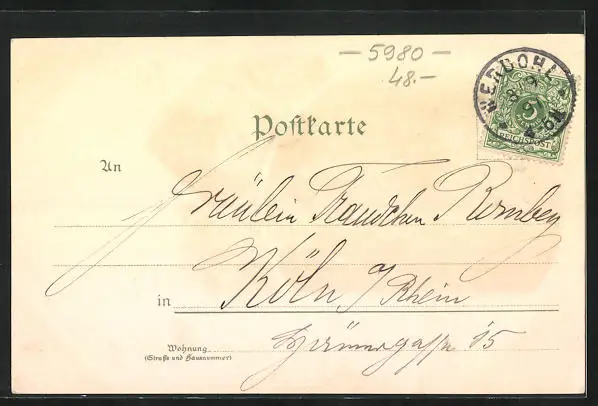 — 5980 —
48.-
WERDOHL
5
REICHSPOST
Postkarte
An
Fräulein Traudchen Romberg
Köln a/Rhein
in
15
Wohnung
(Straße und Hausnummer)